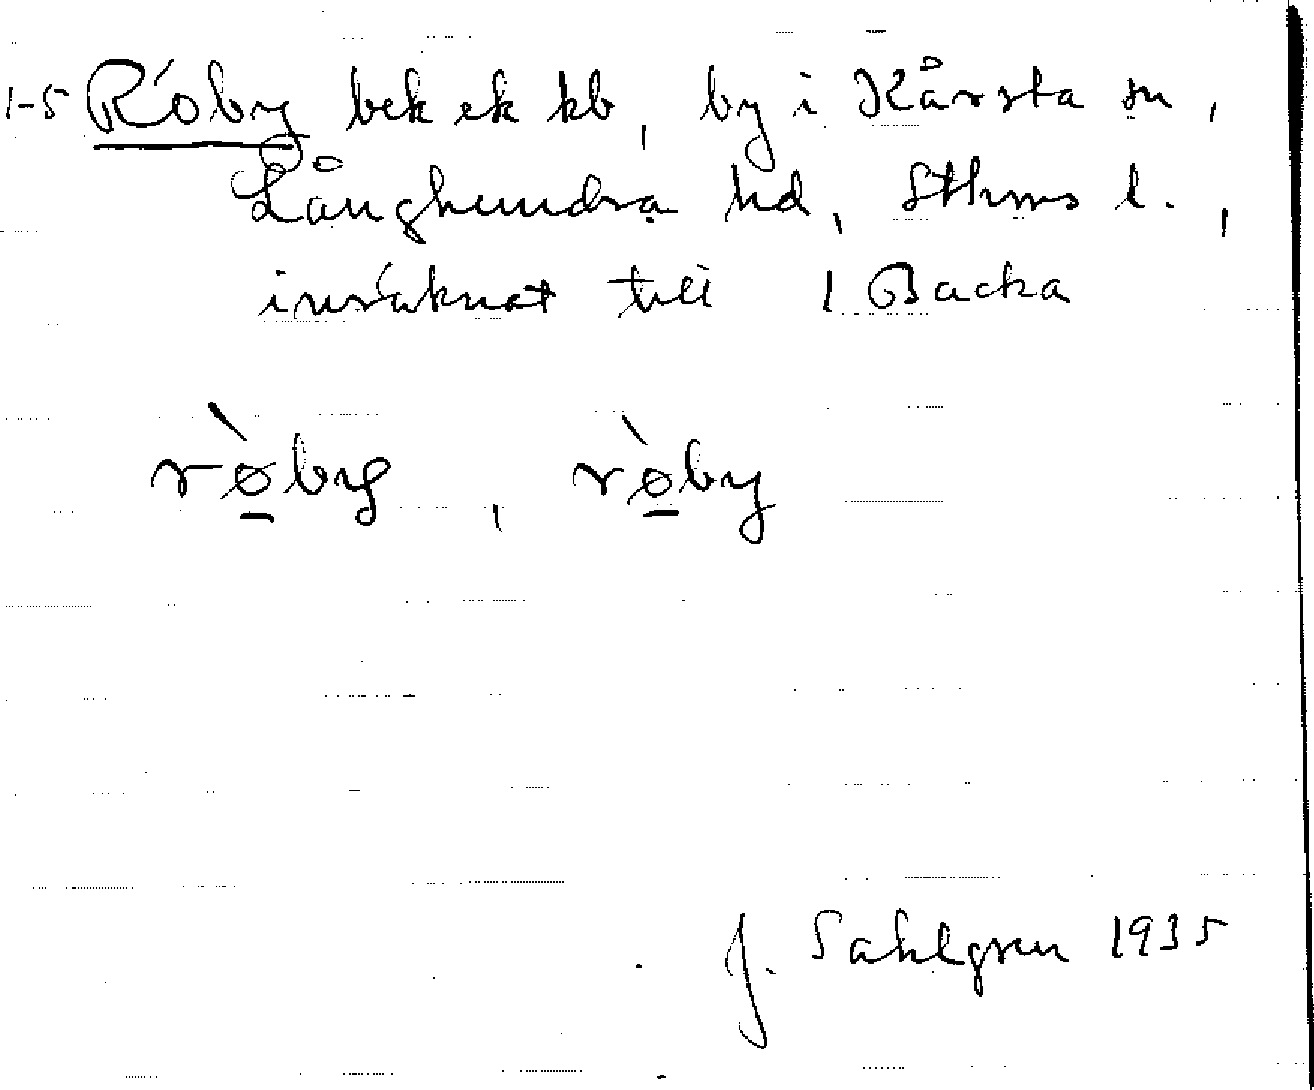 1-5 Röby bek ek kb, by i Kårsta sn,
Långhundra hd, Sthms l.,
inräknat till 1 Backa
rø̀by, rø̀by
J. Sahlgren 1935